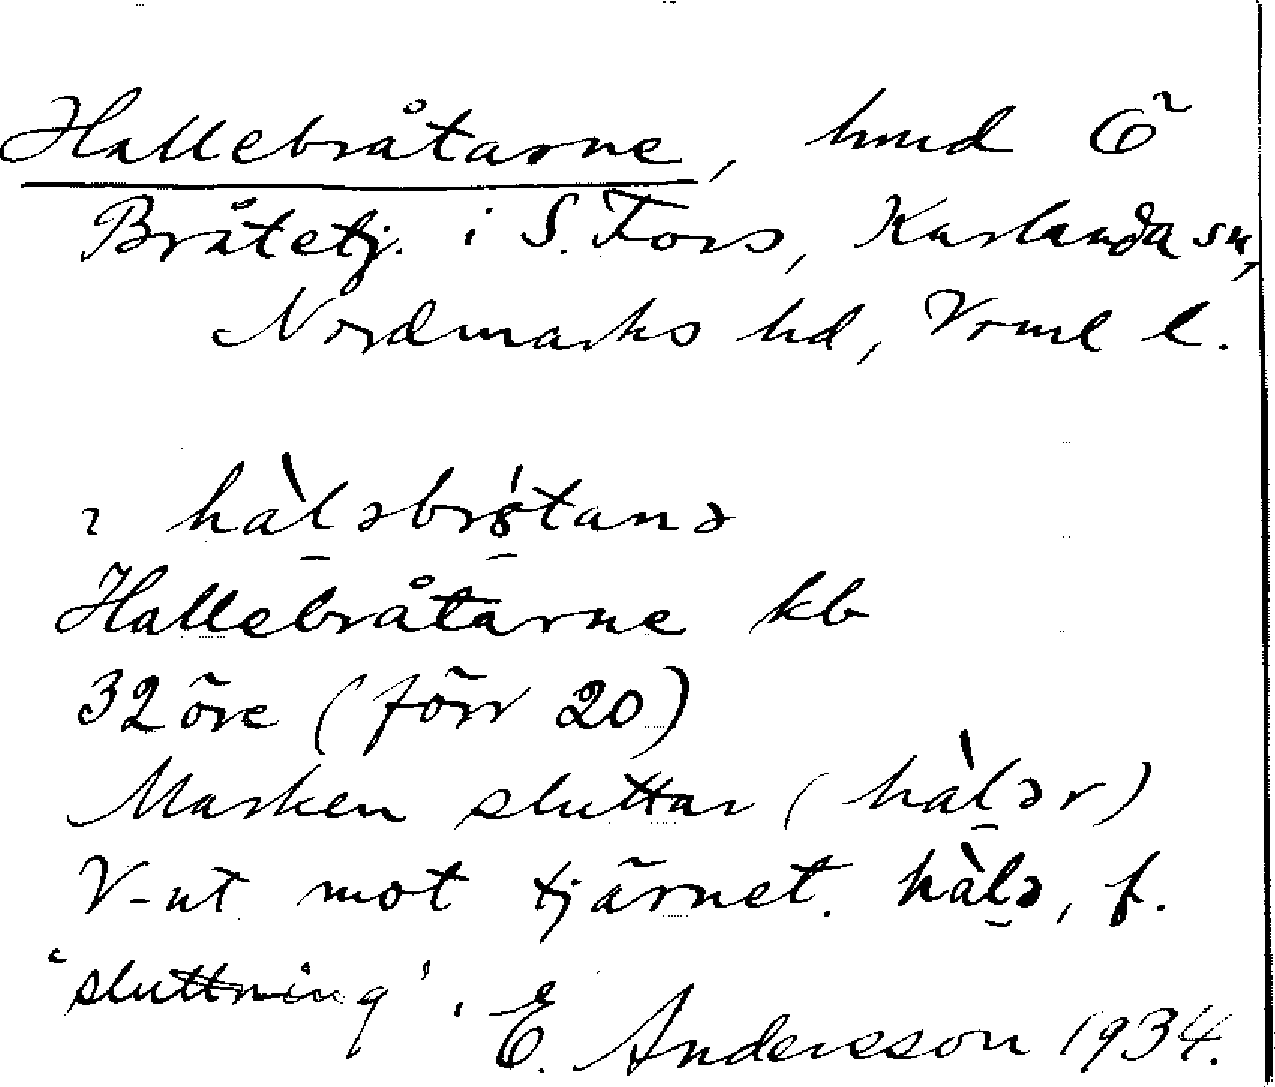 Hallebråtarne, hmd Ö
Bråtetj. i S. Fors, Karlanda sn,
Nordmarks hd, Vrml l.
hàl̠əbrátanə
Hallebråtarne kb
32 öre (förr 20)
Marken sluttar (hàl̠ər)
V-ut mot tjärnet. hàl̠ə, f.
'sluttning'. E. Andersson 1934.